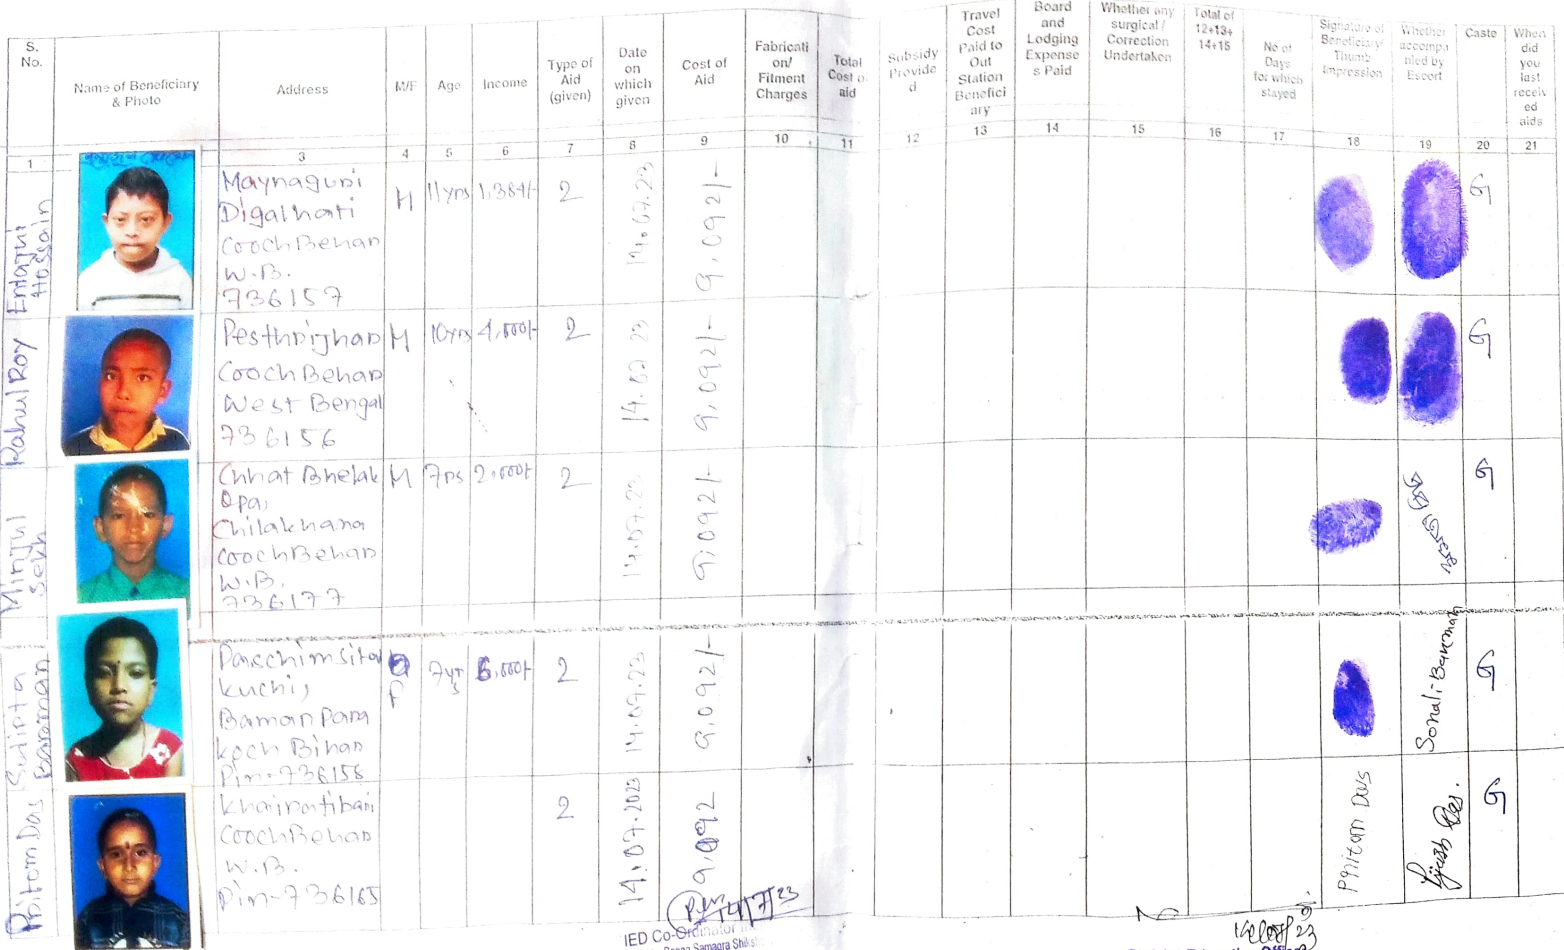 S. No.
Name of Beneficiary & Photo
Address
M/F
Age
Income
Type of Aid (given)
Date on which given
Cost of Aid
Fabricati on/ Fitment Charges
Total Cost of aid
Subsidy Provide d
Travel Cost Paid to Out Station Benefici ary
Board and Lodging Expense s Paid
Whether any surgical / Correction Undertaken
Total of 12+13+ 14+15
No of Days for which stayed
Signature of Beneficiary/ Thumb Impression
Whether accompa nied by Escort
Caste
When did you last receiv ed aids
1 3 4 5 6 7 8 9 10 11 12 13 14 15 16 17 18 19 20 21
Entajui Hossain
Maynaguri
Digalhati
Cooch Behar
W.B.
736157
M 11yrs 1,384/- 2 14.07.23 9,092/- G
Rahul Roy
Pesthrijhar
Cooch Behar
West Bengal
736156
M 10yrs 4,000/- 2 14.07.23 9,092/- G
Minjul Sekh
Chhat Bhelak
opa,
Chilakhana
Cooch Behar
W.B.
736177
M 7rs 2,000/- 2 14.07.23 9,092/- G
Sudipta Barman
Paschim sitar
kuchi,
Baman Para
Koch Bihar
Pin-736158
F 7yrs 6,000/- 2 14.07.23 9,092/- Sonali Barman G
Pritom Das
Khairatibari
Cooch Behar
W.B.
Pin-736165
2 14.07.2023 9,092 Pritom Das G
14/7/23
IED Co-Ordinator
Samagra Shiksha